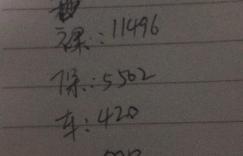 裸:11496
保:5502
车:420